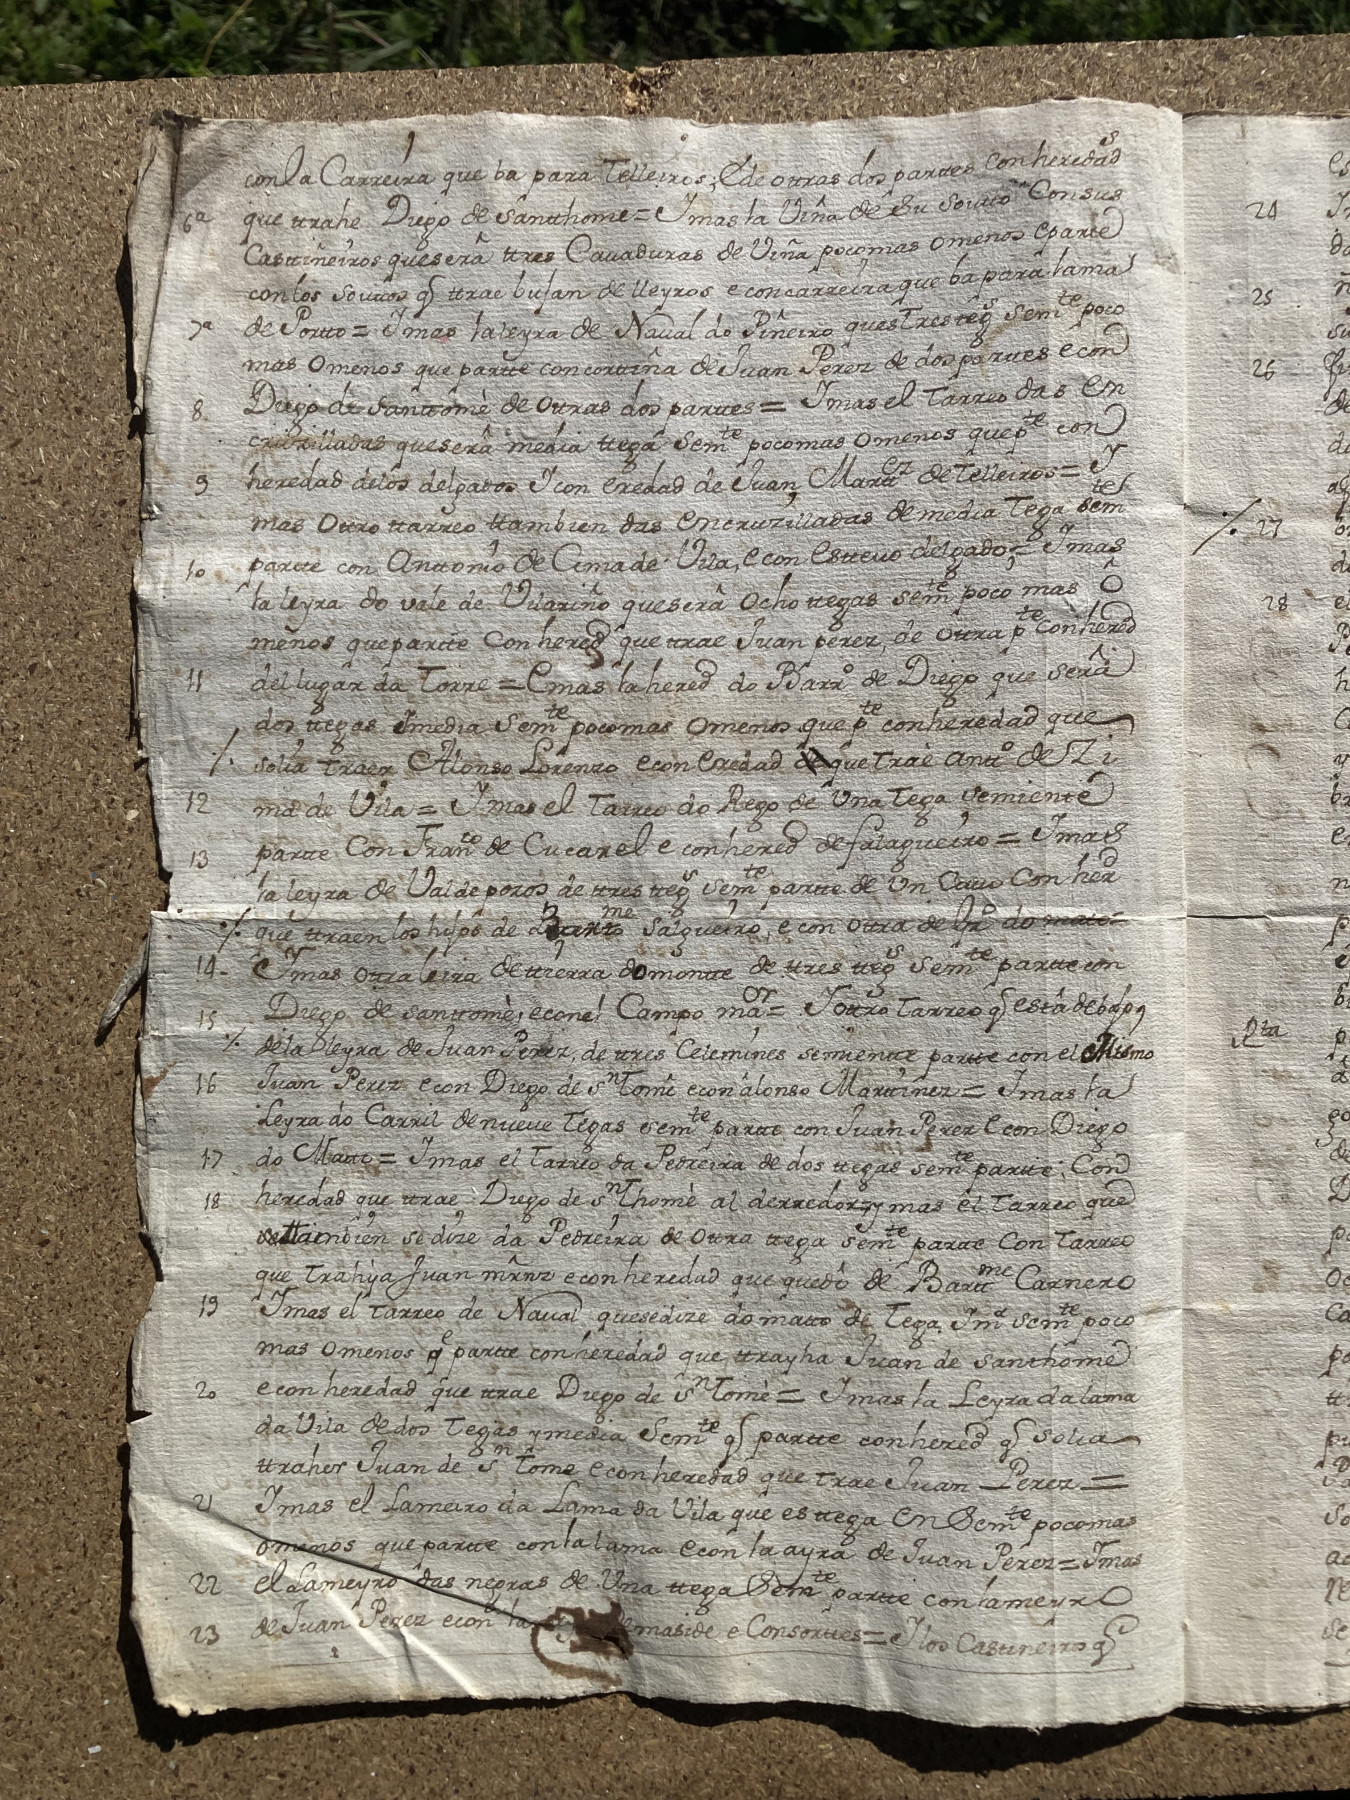 con la Carreira que ba para Telleiros, e de otras dos partes con heredads
6a que ttrahe Diego de santthome = Y mas la Viña de Su Soutto Con sus
Casttiñeiros que será ttres Cauaduras de Viña poco mas o menos e parte
con los souttos q ttrae bujan de lleyros e con carreira que ba para lama
7a de Portto = Y mas la leyra de Naual do Piñeiro ques Tres tegs semte poco
mas o menos que partte con corttiña de Juan Perez de dos parttes e con
8 Diego de Santtomè de otras dos parttes = Y mas el Tarreo das En
cruzilladas que será media ttega semte poco mas o menos que pte con
9 heredad de los delgados Y con eredad de Juan Marttez de Telleiros = Y
mas Ottro ttarreo ttambien das encruzilladas de media Tega semte
10 partte con Anttonio de Cima de Vila, e con Esteuo delgado = Y mas
la leyra do vale de Vilariño que será ocho ttegas semte poco mas O
menos que partte con hered que ttrae Juan perez, de otra pte con hered
11 del lugar da Torre = E mas la hered do Barro de Diego que será
dos ttegas Y media semte poco mas o menos que pte con heredad que
solia traer Alonso Lorenzo e con Eredad que Trae Antto de Zi
12 ma de Vila = Y mas el Tarreo do Rego de Una Tega semiente
13 partte Con Franco de Cucarel e con hered de falagueiro = Y mas
la leyra de Valdeporos de ttres ttegs semte partte de Un Cauo Con her
que ttraen los hijos de Bartme Salgueiro, e con otra de Gro do matto
14 Y mas otra leira de ttierra do montte de ttres ttegs semte partte con
15 Diego de santtomè, e con el Campo maor = Y ottro Tarreo q está debajo
de la leyra de Juan Perez, de ttres Celemines semientte partte con el Mismo
16 Juan Perez e con Diego de Sn Tomé e con alonso Marttinez = Y mas la
Leyra do Carril de nueue Tegas semte partte con Juan Perez e con Diego
17 do Matto = Y mas el Tarreo da Pedreira de dos ttegas semte partte, Con
18 heredad que ttrae Diego de Sn Thomè al derredor, y mas el Tarreo que
ttambien se dize da Pedreira de otra ttega semte partte Con Tarreo
que trahya Juan mrnz e con heredad que quedó de Barttme Carnero
19 Y mas el Tarreo de Naual que se dize do matto de Tega Ymd semte poco
mas o menos q partte con heredad que ttrayha Juan de santhome
20 e con heredad que ttrae Diego de Sn Tomè = Y mas la Leyra da lama
da Vila de dos Tegas y media Semte q partte con hered q solia
ttraher Juan de Sn Tome e con heredad que trae Juan Perez =
21 Y mas el Lameiro da Lama da Vila que es ttega En Semte poco mas
o menos que partte con la lama e con la ayra de Juan Perez = Y mas
22 el Lameyro das negras de Una ttega Semte partte con lameyro
23 de Juan Perez e con la de maside e Consorttes = Y los Casttineiros q
24
25
26
27
28